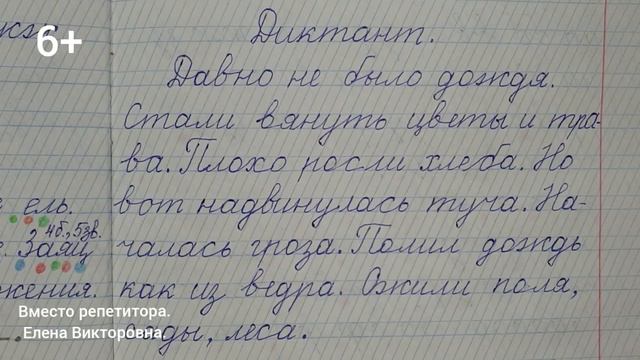 6+
Диктант.
Давно не было дождя.
Стали вянуть цветы и тра-
ва. Плохо росли хлеба. Но
ель. вот надвинулась туча. На-
4б., 5зв.
Заяц чалась гроза. Полил дождь
жения. как из ведра. Ожили поля,
Вместо репетитора.
Елена Викторовна. сады, леса.